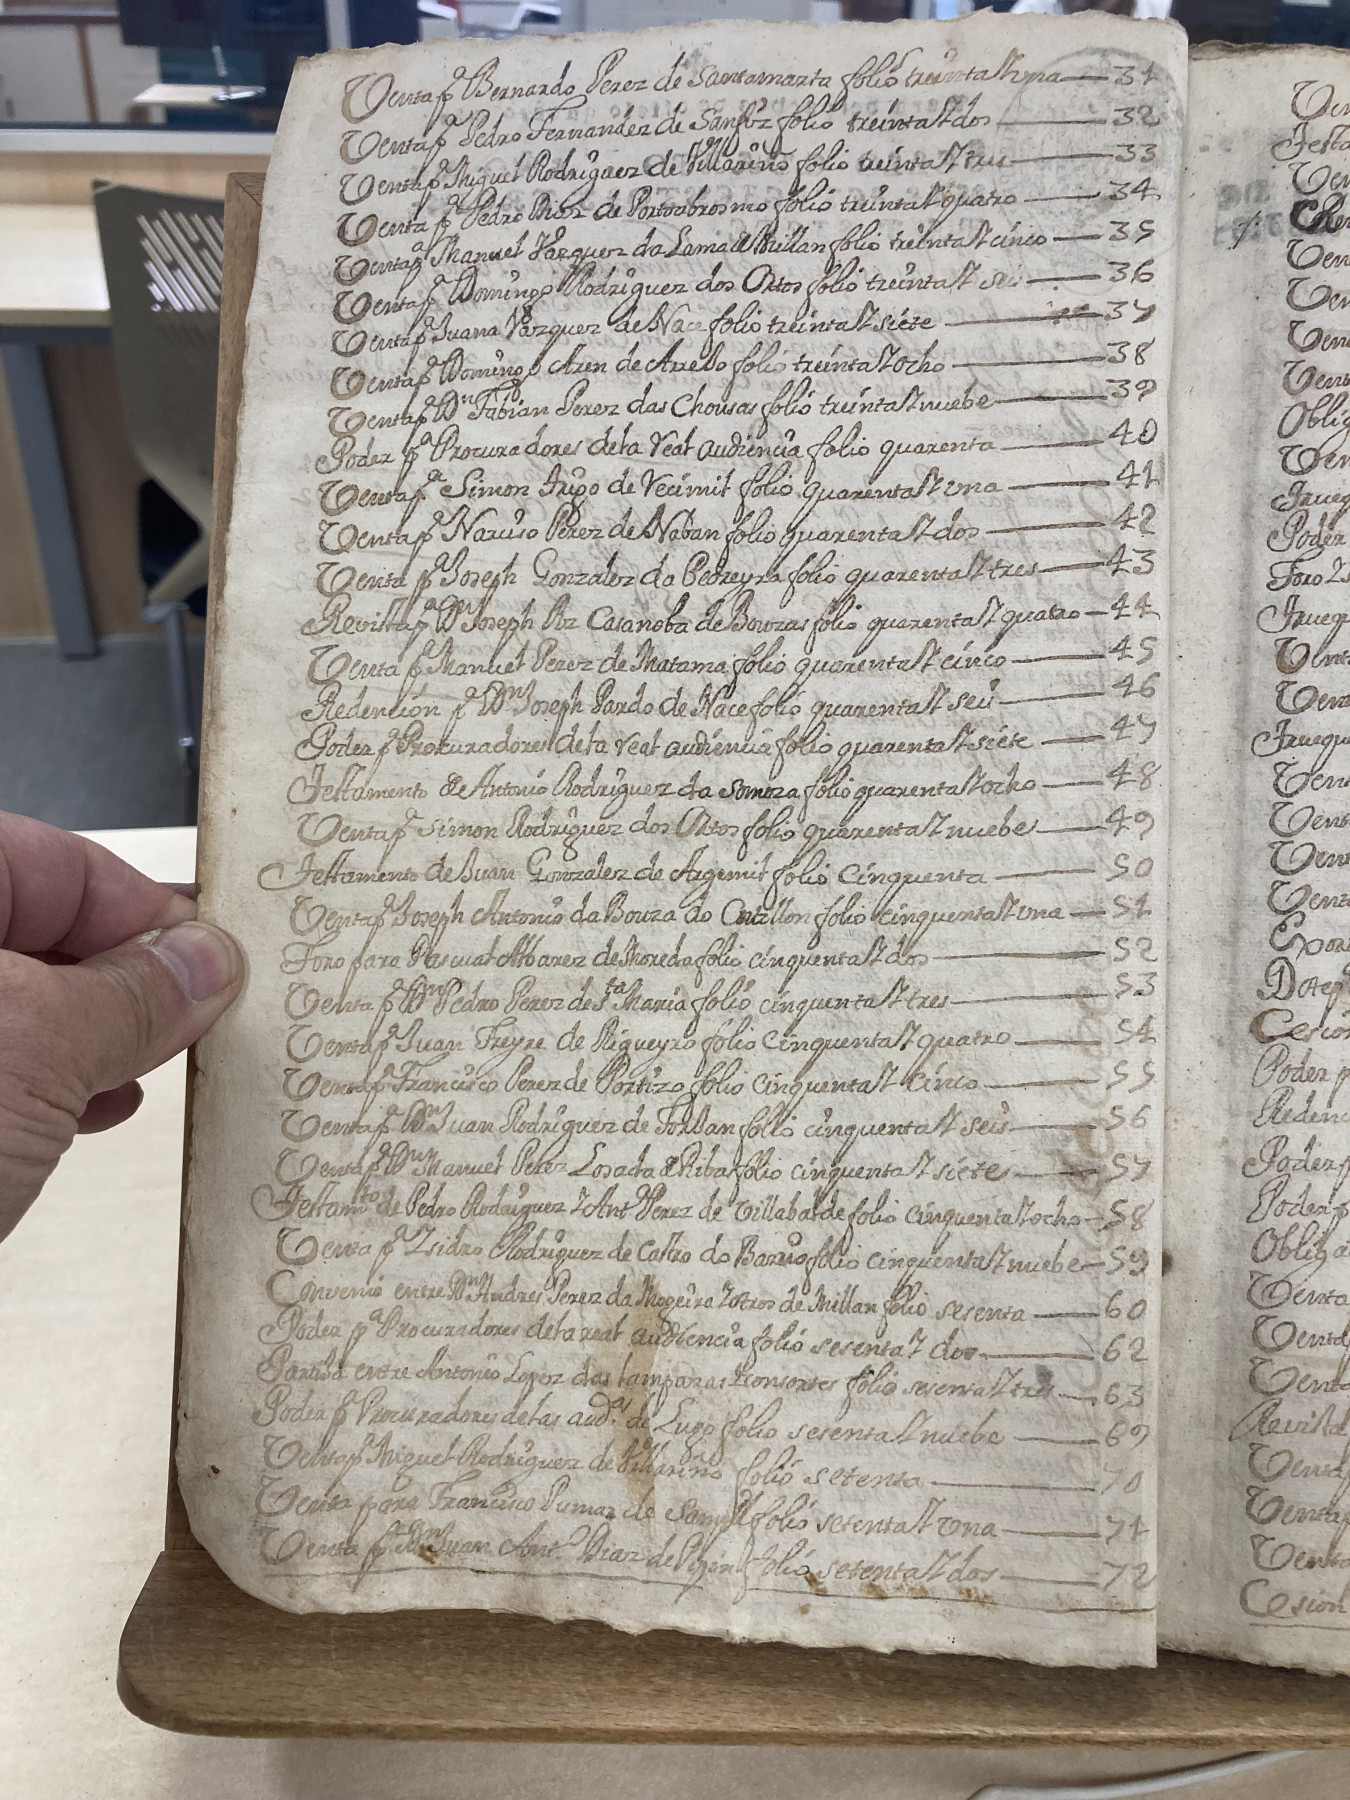 Venta pª Bernardo Perez de Santamarta folio treinta Y una — 31
Venta pª Pedro Fernandez de folio treinta Y dos — 32
Venta pª Miguel Rodriguez de Villariño folio treinta Y tres — 33
Venta pª Pedro de folio treinta Y quatro — 34
Venta pª Manuel Vazquez da Lama de Millan folio treinta Y cinco — 35
Venta pª Domingo Rodriguez dos Ortos folio treinta Y seis — 36
Venta pª Juana Vazquez de Nace folio treinta Y siete — 37
Venta pª Domingo Aren de folio treinta Y ocho — 38
Venta pª Dn Fabian Perez das Chousas folio treinta Y nuebe — 39
Poder pª Procuradores de la real audiencia folio quarenta — 40
Venta pª Simon de folio quarenta Y una — 41
Venta pª Narciso Perez de Naban folio quarenta Y dos — 42
Venta pª Joseph Gonzalez da Pedreyra folio quarenta Y tres — 43
Revista pª Dn Joseph Rz Casanoba de Bouzas folio quarenta Y quatro — 44
Venta pª Manuel Perez de Matama folio quarenta Y cinco — 45
Redención pª Dn Joseph Pardo de Nace folio quarenta Y seis — 46
Poder pª Procuradores de la real audiencia folio quarenta Y siete — 47
Testamento de Antonio Rodriguez da Somoza folio quarenta Y ocho — 48
Venta pª Simon Rodriguez dos Ortos folio quarenta Y nuebe — 49
Testamento de Juan Gonzalez de Argemil folio Cinquenta — 50
Venta pª Joseph Antonio da Bouza do folio cinquenta Y una — 51
Foro para Pascual Albarez de Moreda folio cinquenta Y dos — 52
Venta pª Dn Pedro Perez de Sta Maria folio cinquenta Y tres — 53
Venta pª Juan Freyre de Rigueyro folio Cinquenta Y quatro — 54
Venta pª Francisco Perez de Portizo folio Cinquenta Y Cinco — 55
Venta pª Dn Juan Rodriguez de folio cinquenta Y seis — 56
Venta pª Dn Manuel Perez Losada de Riba folio cinquenta Y siete — 57
Testamto de Pedro Rodriguez Y Antª Perez de Villabalde folio cinquenta Y ocho — 58
Venta pª Ysidro Rodriguez de Castro do folio cinquenta Y nuebe — 59
Convenio entre Dn Andres Perez da Mogeira Y otros de Millan folio sesenta — 60
Poder pª Procuradores de la real audiencia folio sesenta Y dos — 62
Partida entre Antonio Lopez das Lamparas Y consortes folio sesenta Y tres — 63
Poder pª Procuradores de las audªs de Lugo folio sesenta Y nuebe — 69
Venta pª Miguel Rodriguez de Villariño folio setenta — 70
Venta para Francisco Pumar de folio setenta Y una — 71
Venta pª Dn Juan Antº Diaz de folio setenta Y dos — 72